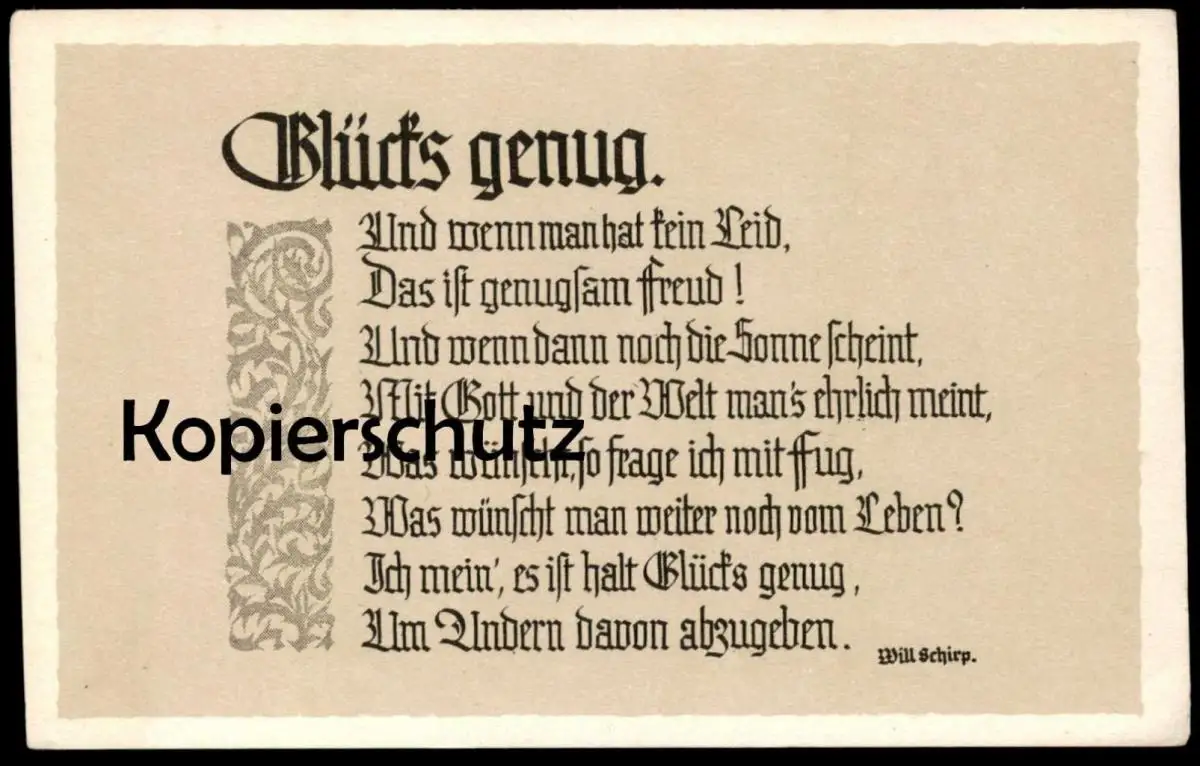 Glücks genug.
Und wenn man hat kein Leid,
Das ist genugsam Freud!
Und wenn dann noch die Sonne scheint,
Mit Gott und der Welt man's ehrlich meint,
Kopierschutz
Was wünscht, so frage ich mit Fug,
Was wünscht man weiter noch vom Leben?
Ich mein', es ist halt Glücks genug,
Um Andern davon abzugeben.
Will Schirp.